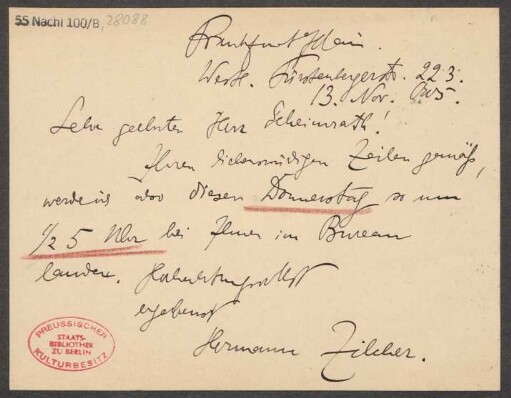 55 Nachl 100/B, 28088
Frankfurt Main.
Westl. Fürstenbergerstr. 223.
13. Nov. 1905.
Sehr geehrter Herr Geheimrath!
Ihren liebenswürdigen Zeilen gemäß,
werde ich also diesen Donnerstag so um
1/2 5 Uhr bei Ihnen im Bureau
landen. Hochachtungsvollst
ergebenst
Hermann Zilcher.
PREUSSISCHER
STAATS-
BIBLIOTHEK
ZU BERLIN
KULTURBESITZ